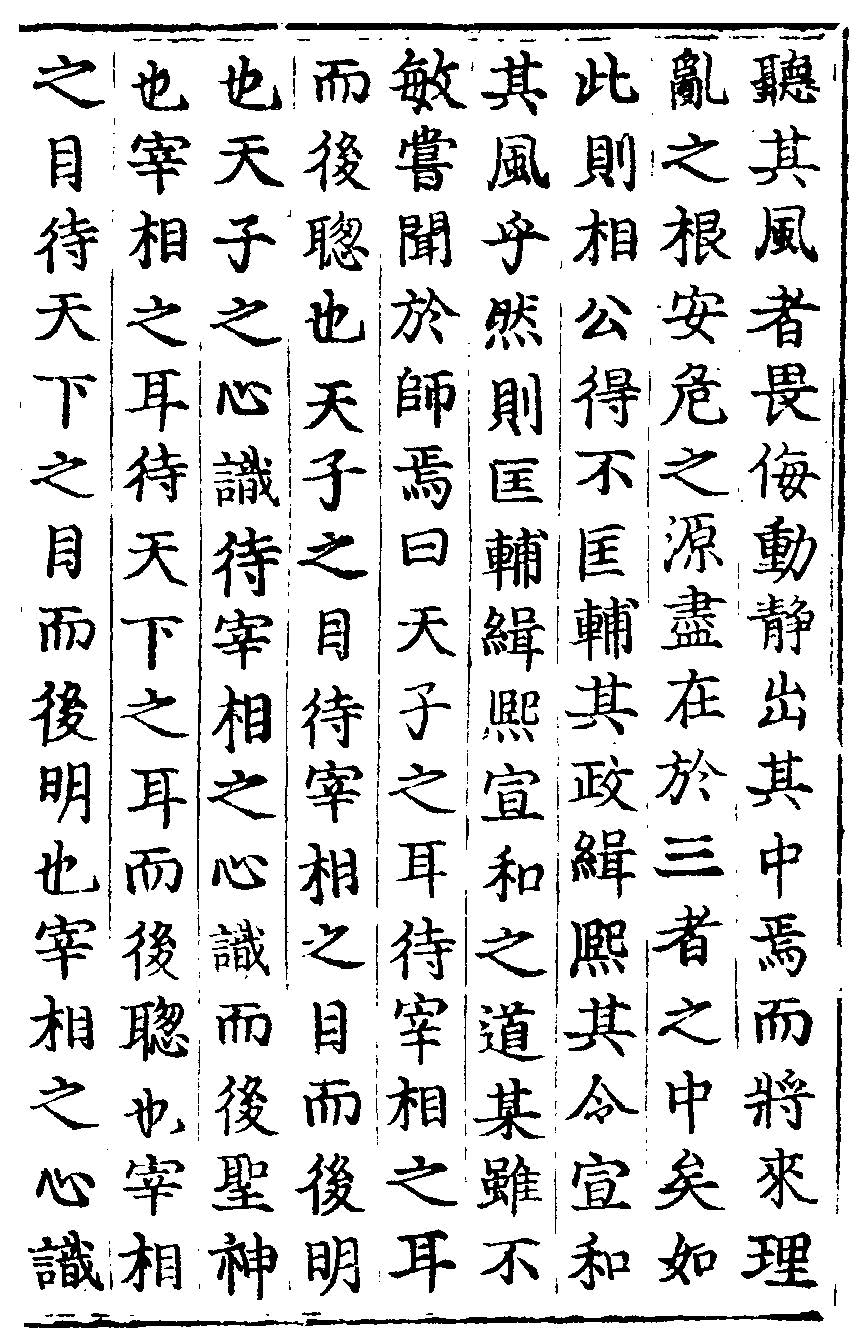 聽其風者畏侮動靜出其中焉而將來理
亂之根安危之源盡在於三者之中矣如
此則相公得不匡輔其政緝熙其令宣和
其風乎然則匡輔緝熙宣和之道某雖不
敏嘗聞於師焉曰天子之耳待宰相之耳
而後聰也天子之目待宰相之目而後明
也天子之心識待宰相之心識而後聖神
也宰相之耳待天下之耳而後聰也宰相
之目待天下之目而後明也宰相之心識